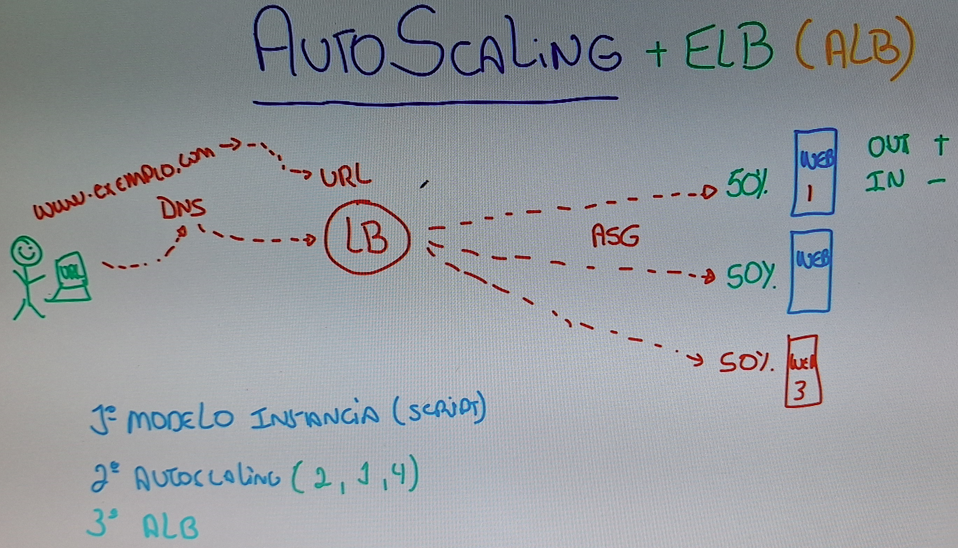 AUTOSCALING + ELB (ALB)
www.exemplo.com
URL
DNS
URL
LB
ASG
50%.
WEB
1
OUT +
IN -
50%.
WEB
50%.
WEB
3
1º MODELO INSTANCIA (SCRIPT)
2º AUTOSCALING (2, 1, 4)
3º ALB